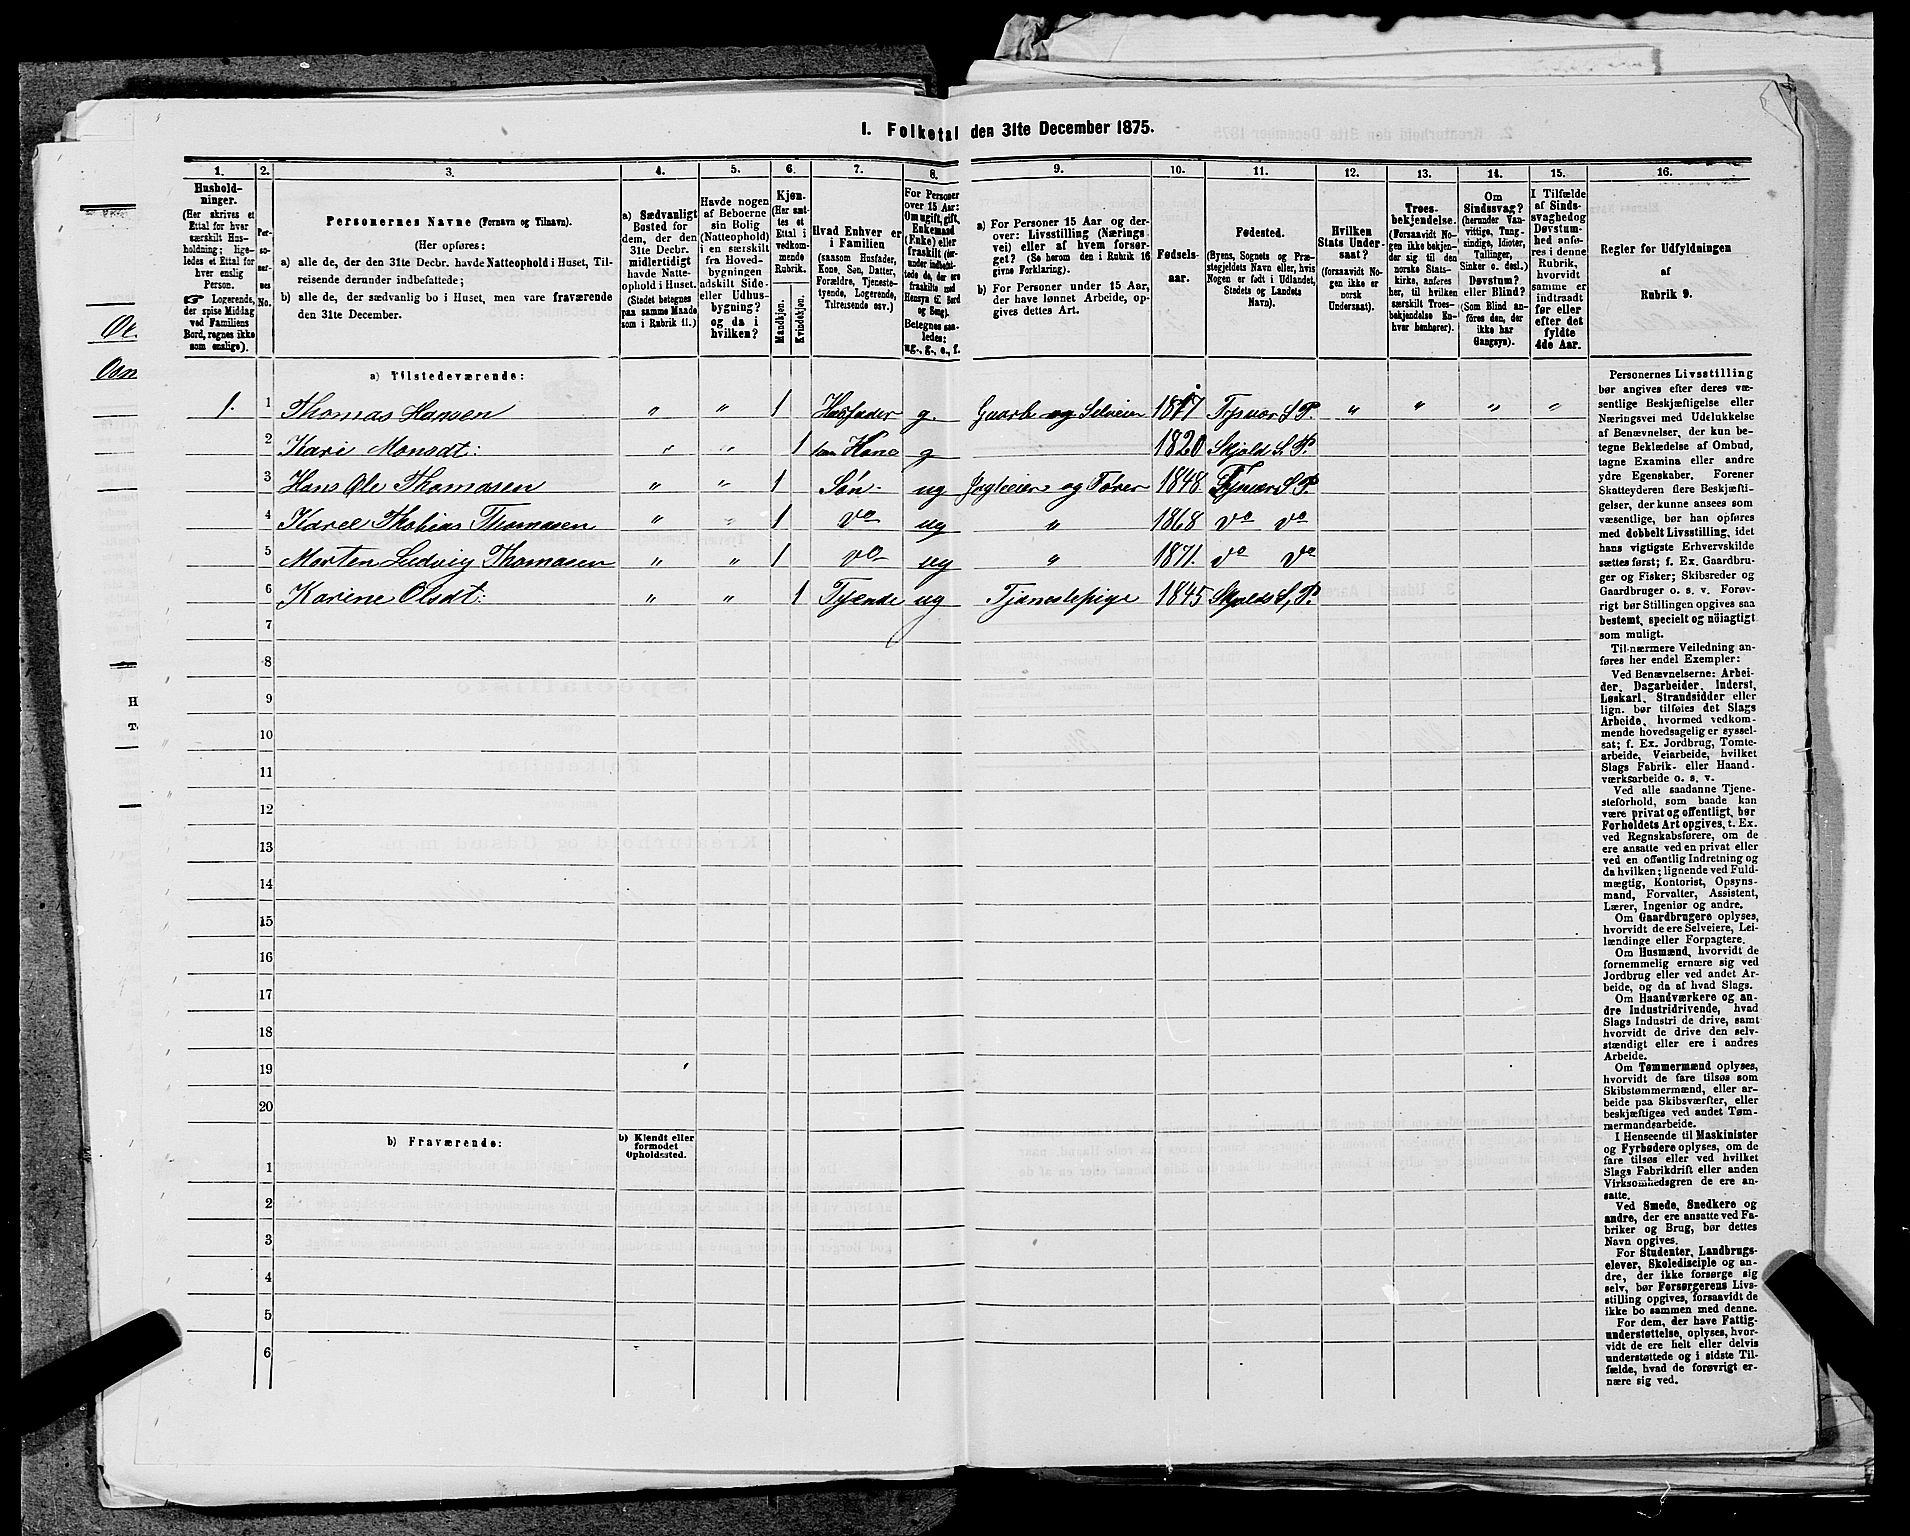 I. Folketal den 31te December 1875.
1.
2.
3.
4.
5.
6.
7.
8.
9.
10.
11.
12.
13.
14.
15.
16.
Hushold-
ninger.
(Her skrives et
Ettal for hver
særskilt Hus-
holdning; lige-
ledes et Ettal for
hver enslig
Person.
☞ Logerende,
der spise Middag
ved Familiens
Bord, regnes ikke
som enslige).
Per-
so-
ner-
nes
No.
Personernes Navne (Fornavn og Tilnavn).
(Her opføres:
a) alle de, der den 31te Decbr. havde Natteophold i Huset, Til-
reisende derunder indbefattede;
b) alle de, der sædvanlig bo i Huset, men vare fraværende
den 31te December.
a) Sædvanligt
Bosted for
dem, der den
31te Decbr.
midlertidigt
havde Natte-
ophold i Huset.
(Stedet betegnes
paa samme Maade
som i Rubrik 11.)
Havde nogen
af Beboerne
sin Bolig
(Natteophold)
i en særskilt
fra Hoved-
bygningen
adskilt Side-
eller Udhus-
bygning?
og da i
hvilken?
Kjøn.
(Her sæt-
tes et
Ettal i
vedkom-
mende
Rubrik.
Mandkjøn.
Kvindekjøn.
Hvad Enhver er
i Familien
(saasom Husfader,
Kone, Søn, Datter,
Forældre, Tjeneste-
tyende, Logerende,
Tilreisende osv.)
For Personer
over 15 Aar:
Om ugift, gift,
Enkemand
(Enke) eller
fraskilt (der-
under indbefat-
tede de, der ere
fraskilte med
Hensyn til Bord
og Seng).
Betegnes saa-
ledes:
ug., g., e., f.
a) For Personer 15 Aar og der-
over: Livsstilling (Nærings
vei) eller af hvem forsør-
get? (Se herom den i Rubrik 16
givne Forklaring).
b) For Personer under 15 Aar,
der have lønnet Arbeide, op-
gives dettes Art.
Fødsels-
aar.
Fødested.
(Byens, Sognets og Præ-
stegjeldets Navn eller, hvis
Nogen er født i Udlandet,
Stedets og Landets
Navn).
Hvilken
Stats Under-
saat?
(forsaavidt No-
gen ikke er
norsk
Undersaat).
Troes-
bekjendelse.
(Forsaavidt No-
gen ikke bekjen-
der sig til den
norske Stats-
kirke, anføres
her, til hvilken
særskilt Troes-
bekjendelse En-
hver henhører).
Om
Sindssvag?
(herunder Van-
vittige, Tung-
sindige, Idioter,
Tallinger,
Sinker o. desl.)
Døvstum?
eller Blind?
(Som Blind an-
føres den, der
ikke har
Gangsyn).
I Tilfælde
af Sinds-
svaghedog
Døvstum-
hed anfø-
res i denne
Rubrik,
hvorvidt
samme er
indtraadt
før eller
efter det
fyldte
4de Aar.
Regler for Udfyldningen
af
Rubrik 9.
a) Tilstedeværende:
1. 1 Thomas Hansen " " 1 Husfader g. Gaardb og Selveier 1817 Tysvær S.P. " " " "
2 Kari Monsdt: " " 1 hans Kone g 1820 Skjold S. P.
3 Hans Ole Thomasen " " 1 Søn ug 1848 Tysvær S P.
4 Karel Thobias Thomasen " " 1 do ug " 1868 do do
5 Morten Ludvig Thomasen " " 1 do ug " 1871. do do
6 Karine Olsdt: " " 1 Tyende ug Tjenestepige 1845 Skjold S, P.
7
8
9
10
11
12
13
14
15
16
17
18
19
20
b) Fraværende:
b) Kjendt eller
formodet
Opholdssted.
1
2
3
4
5
6
Personernes Livsstilling
bør angives efter deres væ-
sentlige Beskjæftigelse eller
Næringsvei med Udelukkelse
af Benævnelser, der kun be-
tegne Beklædelse af Ombud,
tagne Examina eller andre
ydre Egenskaber. Forener
Skatteyderen flere Beskjæfti-
gelser, der kunne ansees som
væsentlige, bør han opføres
med dobbelt Livsstilling, idet
hans vigtigste Erhvervskilde
sættes først; f. Ex. Gaardbru-
ger og Fisker; Skibsreder og
Gaardbruger o. s. v. Forøv-
rigt bør Stillingen opgives saa
bestemt, specielt og nöiagtigt
som muligt.
Til nærmere Veiledning an-
føres her endel Exempler:
Ved Benævnelserne: Arbei-
der, Dagarbeider, Inderst,
Løskarl, Strandsidder eller
lign. bør tilføies det Slags
Arbeide, hvormed vedkom-
mende hovedsagelig er syssel-
sat; f. Ex. Jordbrug, Tomte-
arbeide, Veiarbeide, hvilket
Slags Fabrik- eller Haand-
værksarbeide o. s. v.
Ved alle saadanne Tjene-
steforhold, som baade kan
være privat og offentligt, bør
Forholdets Art opgives, t. Ex.
ved Regnskabsførere, om de
ere ansatte ved en privat eller
ved en offentlig Indretning og
da hvilken; lignende ved Fuld-
mægtig, Kontorist, Opsyns-
mand, Forvalter, Assistent,
Lærer, Ingeniør og andre.
Om Gaardbrugere oplyses,
hvorvidt de ere Selveiere, Lei-
lændinge eller Forpagtere.
Om Husmænd, hvorvidt de
fornemmelig ernære sig ved
Jordbrug eller ved andet Ar-
beide, og da af hvad Slags.
Om Haandværkere og an-
dre Industridrivende, hvad
Slags Industri de drive, samt
hvorvidt de drive den selv-
stændigt eller ere i andres
Arbeide.
Om Tømmermænd oplyses,
hvorvidt de fare tilsøs som
Skibstømmermænd, eller ar-
beide paa Skibsværfter, eller
beskjæftiges ved andet Tøm-
mermandsarbeide.
I Henseende til Maskinister
og Fyrbødere oplyses, om de
fare tilsøs eller ved hvilket
Slags Fabrikdrift eller anden
Virksomhedsgren de ere an-
satte.
Ved Smede, Snedkere og
andre, der ere ansatte ved Fa-
briker og Brug, bør dettes
Navn opgives.
For Studenter, Landbrugs-
elever, Skoledisciple og an-
dre, der ikke forsørge sig
selv, bør Forsørgerens Livs-
stilling opgives, forsaavidt de
ikke bo sammen med denne.
For dem, der have Fattig-
understøttelse, oplyses, hvor-
vidt de ere helt eller delvis
understøttede og i sidste Til-
fælde, hvad de forøvrigt er-
nære sig ved.